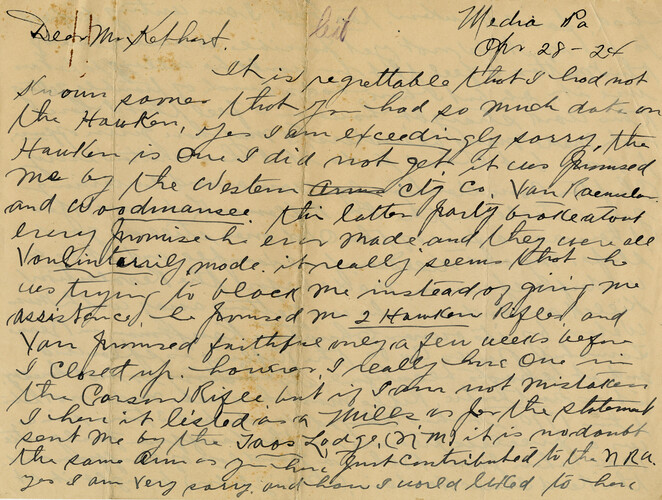 Media Pa
Dear Mr. Kephart. Apr 28-24
It is regrettable that I had not
known sooner that you had so much data on
the Hawken, yes I am exceedingly sorry, the
Hawken is one I did not get, it was promised
me by the Western Arms Ctg Co. Van
and Woodmansee. the latter party broke about
every promise he ever made and they were all
Voluntarily made. it really seems that he
was trying to block me instead of giving me
assistence, he promised me 2 Hawken Rifles, and
Van promised faithful only a few weeks before
I closed up. however, I really have one in
the Carson Rifle but if I am not mistaken
I have it listed as a Mills as for the statement
sent me by the Taos Lodge, (N.M.) it is no doubt
the same arm as you have just contributed to the N.R.A.
yes I am very sorry, and how I would liked to have